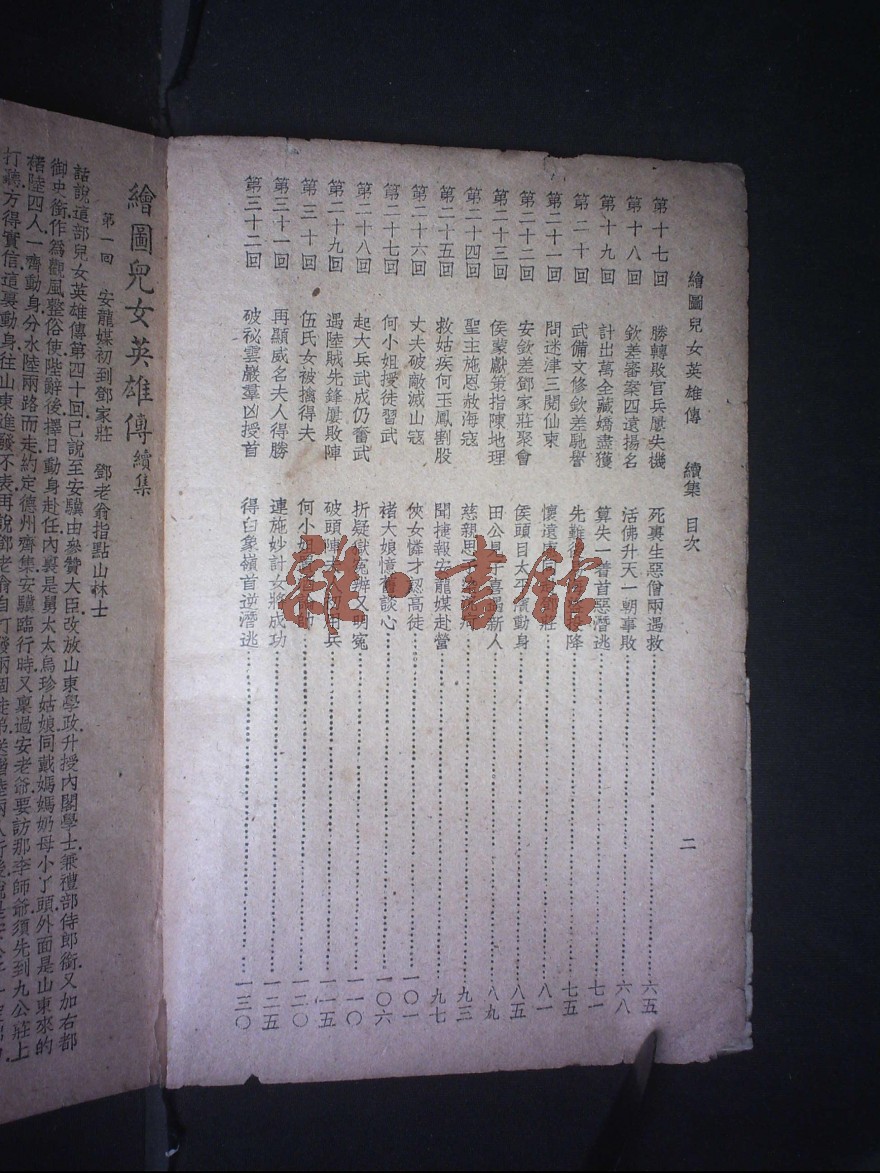 繪圖兒女英雄傳 續集 目次
二
第十七回 勝轉敗官兵屢失機 死裏生惡僧兩遇救 六五
第十八回 欽差審案四遠揚名 活佛升天一朝事敗 六八
第十九回 計出萬全藏嬌盡獲 算失一着首惡潛逃 七一
第二十回 武備文修欽差馳譽 先難後 降 七五
第二十一回 問迷津三閱仙柬 懷遠 莊 八一
第二十二回 安欽差鄧家莊聚會 侯頭目太平 動身 八五
第二十三回 侯蒙獻策指陳地理 田公見子喜 新人 八九
第二十四回 聖主施恩赦海寇 慈親思子 九三
第二十五回 救姑疾何玉鳳割股 聞捷報安龍媒赴營 九七
第二十六回 丈夫破敵滅山寇 俠女憐才認高徒 一〇一
第二十七回 何小姐授徒習武 褚大娘憶舊談心 一〇六
第二十八回 起大兵武成仍奮武 折疑獄冤辦又明冤 一一〇
第二十九回 遇陸賊先鋒屢敗陣 破頭陣 兵 一一五
第三十回 伍氏女被擒得夫 何小姐 一二〇
第三十一回 再顯威名夫人得勝 連施妙計女將成功 一二五
第三十二回 破祕雲巖羣凶授首 得白象嶺首逆潛逃 一三〇
繪圖兒女英雄傳續集
第一回 安龍媒初到鄧家莊 鄧老翁指點山林士
話說這部兒女英雄傳第四十回已說至安驥由參贊大臣改放山東學政升授內閣學士兼禮部侍郎銜又加右都
御史銜作爲觀風整俗使陛辭後擇日動身赴任內裏是舅太太烏珍姑娘同戴媽媽奶母小丫頭外面是山東來的
褚陸四人一齊動身分水陸兩路而走約定德州齊集安驥臨行時又稟過安老爺要訪那李師爺須先到九公莊上
打聽方得實信這裏動身往山東進發不表再說鄧老翁自打發兩個徒弟
雜·書館